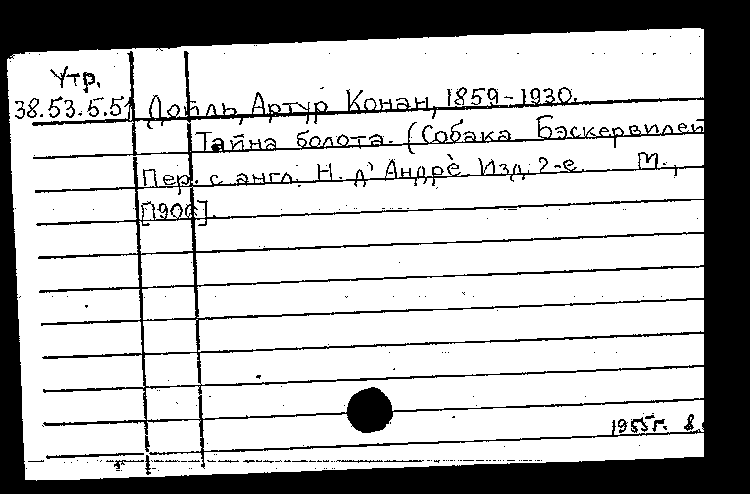 Утр.
38.53.5.51 Дойль, Артур Конан, 1859-1930.
Тайна болота. (Собака Бэскервилей
Пер. с англ. Н. д'Андрè. Изд. 2-е М.,
[1906].
1955г. 8.